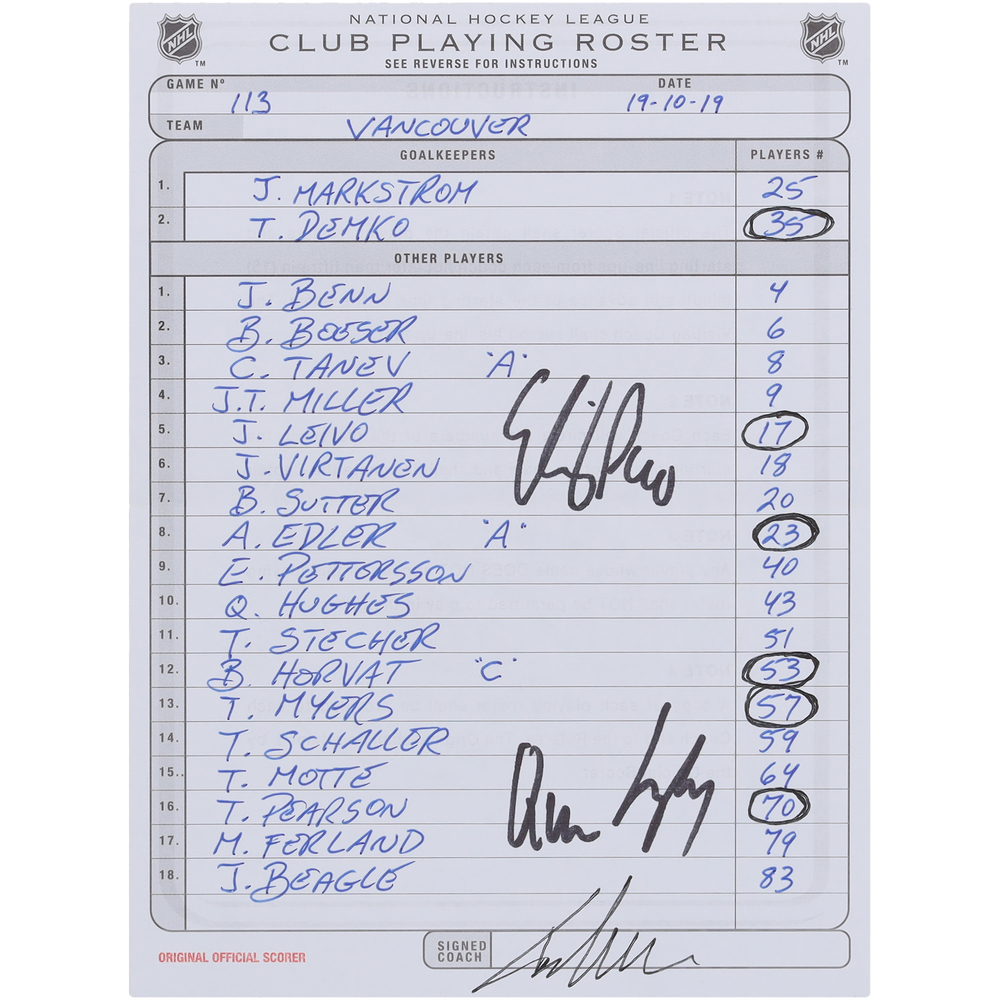 NATIONAL HOCKEY LEAGUE
NHL CLUB PLAYING ROSTER NHL
TM SEE REVERSE FOR INSTRUCTIONS TM
GAME Nº 113 DATE 19-10-19
TEAM VANCOUVER
GOALKEEPERS PLAYERS #
1. J. MARKSTROM 25
2. T. DEMKO 35
OTHER PLAYERS
1. J. BENN 4
2. B. BOESER 6
3. C. TANEV "A" 8
4. J.T. MILLER 9
5. J. LEIVO 17
6. J. VIRTANEN 18
7. B. SUTTER 20
8. A. EDLER "A" 23
9. E. PETTERSSON 40
10. Q. HUGHES 43
11. T. STECHER 51
12. B. HORVAT "C" 53
13. T. MYERS 57
14. T. SCHALLER 59
15. T. MOTTE 64
16. T. PEARSON 70
17. M. FERLAND 79
18. J. BEAGLE 83
SIGNED COACH
ORIGINAL OFFICIAL SCORER